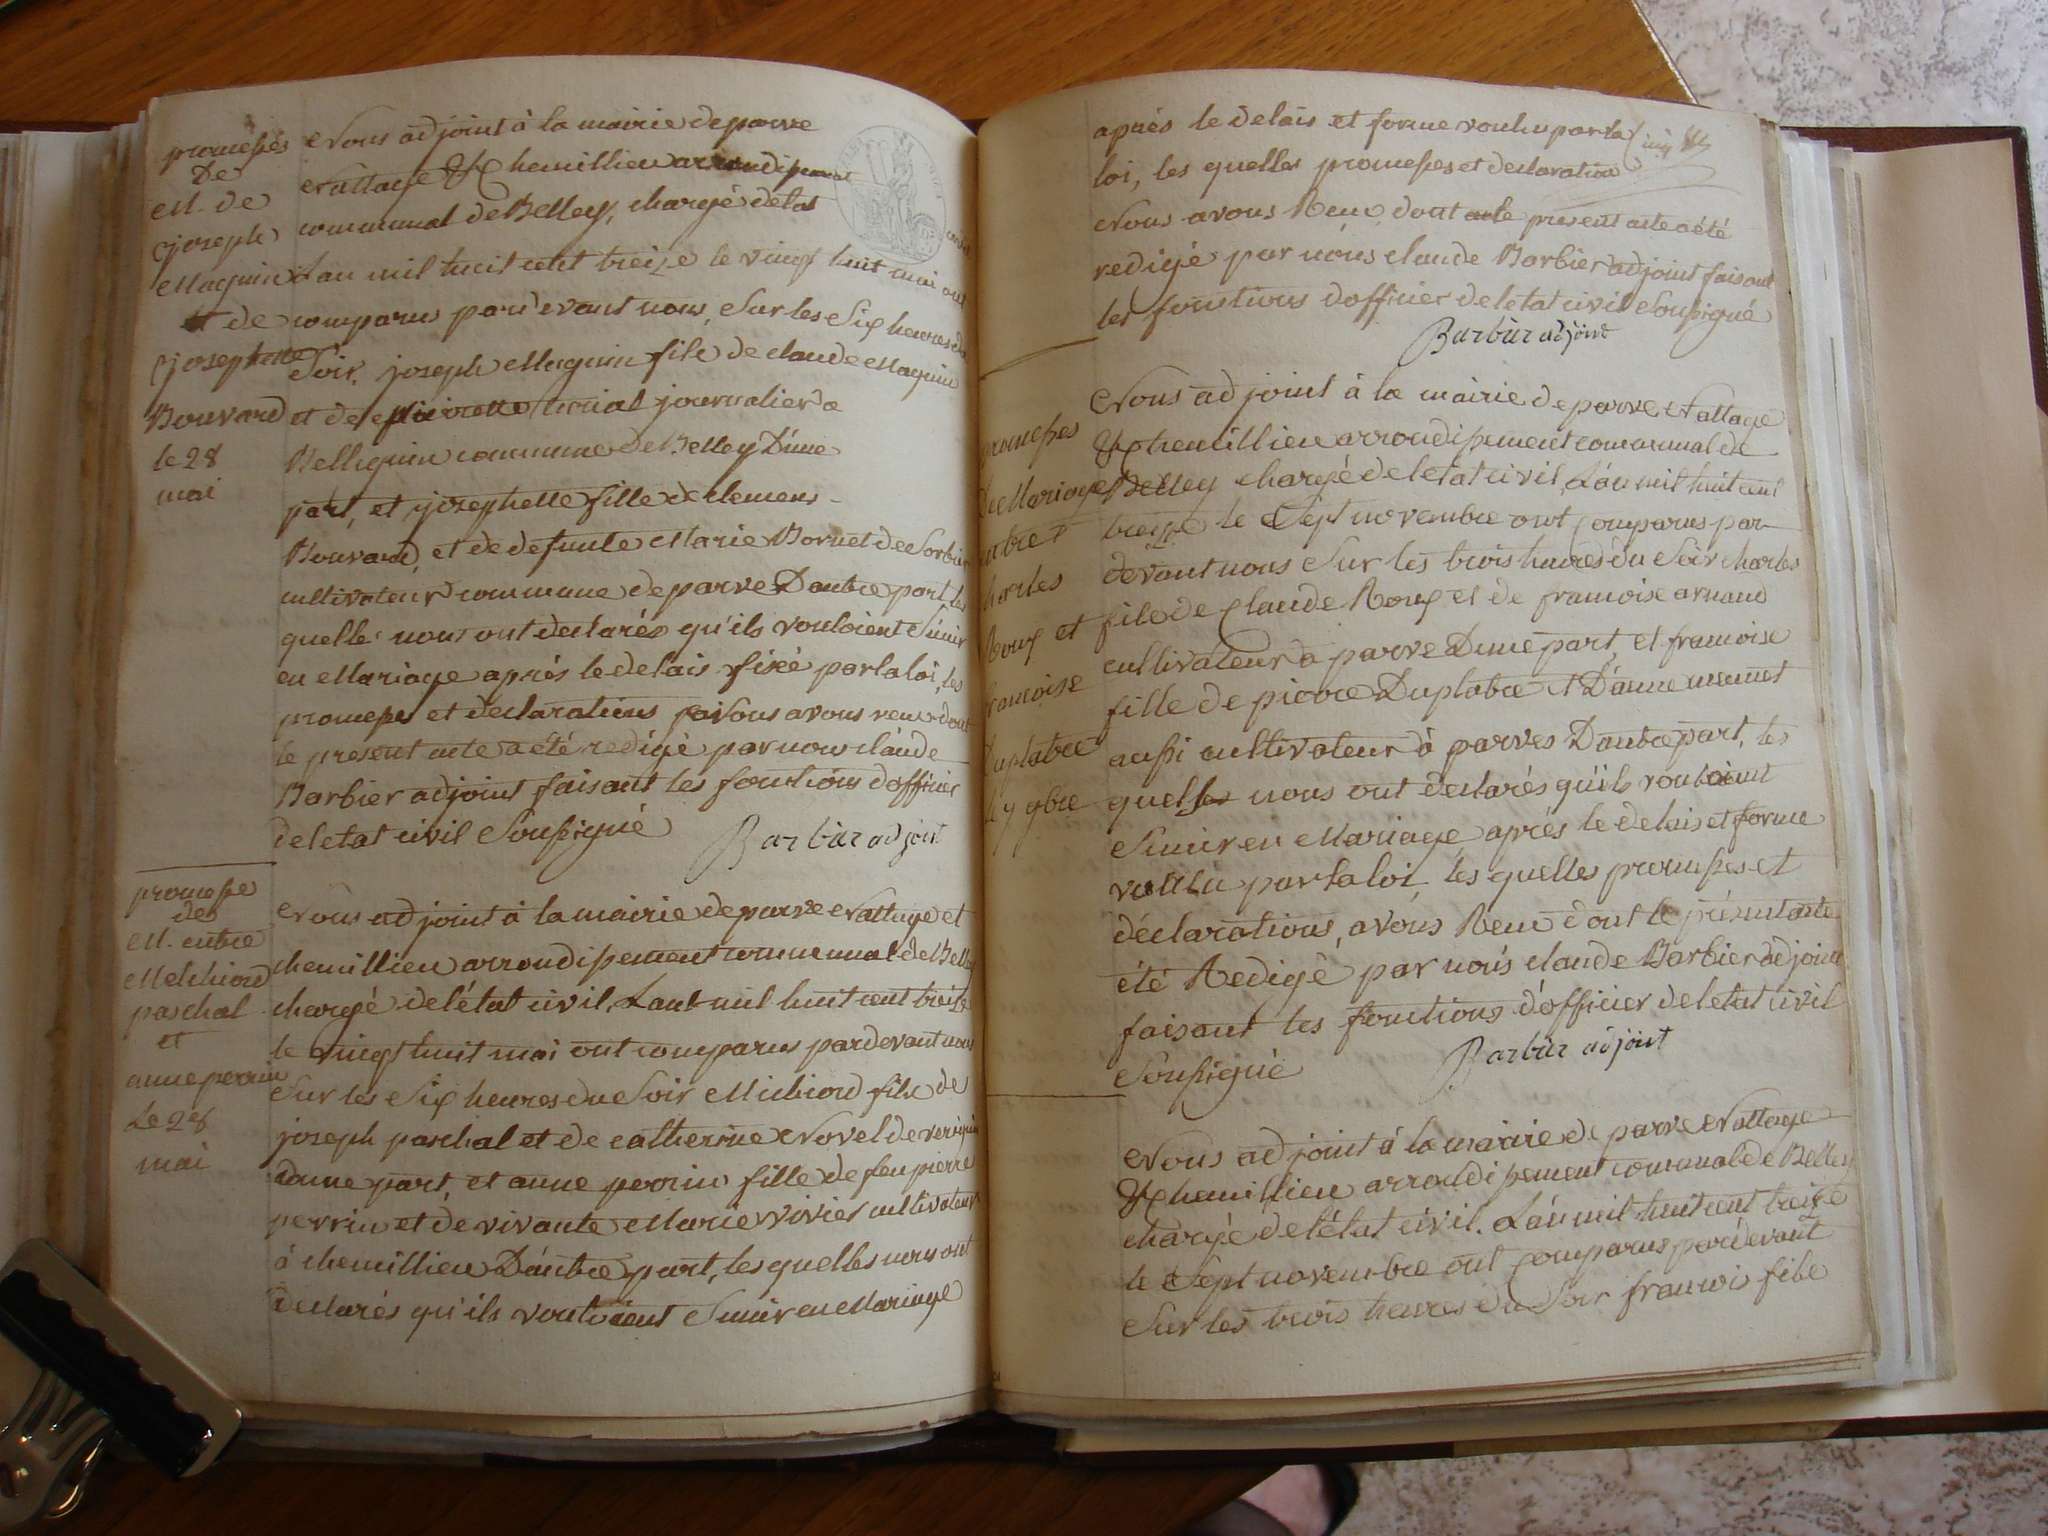 promesses
De
M. de
joseph
Maguin
et de
josephette
Bouvard
le 28
mai
Nous adjoint à la mairie de parve
Nattage & Chemillieu arrondissement
communal de Belley, chargé de l'etat
L'an mil huit cent treize le vingt huit mai ont
comparus pardevant nous, Sur les Six heures du
Soir, joseph Maguin fils de claude Maguin
et de pierrette journalier a
Belliguin commune de Belley D'une
part, et josephette fille de clemens
Bouvard, et de defunte Marie Bornet de Sorbier
cultivateur commune de parve D'autre part les
quelles nous ont declarés qu'ils vouloient S'unir
en Mariage aprés le delais fixé par la loi, les
promesses et declarations Nous avons reçu dont
le present acte a été redigé par nous claude
Barbier adjoint faisant les fonctions d'officier
de letat civil Soussigné
Barbier adjoint
promesse
de
M. entre
Melchiord
paschal
et
anne perrin
Le 28
mai
Nous adjoint à la mairie de parve Nattage et
chemillieu arrondissement communal de Belley
chargé de l'état civil, L'ant mil huit cent treize
le vingt huit mai ont comparus pardevant nous
Sur les Six heures du Soir Melchiord fils de
joseph paschal et de catherine Novel de
d'une part, et anne perrin fille de feu pierre
perrin et de vivante Marie vivier cultivateur
à chemillieu D'autre part, les quelles nous ont
declarés qu'ils vouloient S'unir en Mariage
aprés le delais et forme voulu par la
loi, les quelles promesses et declaration
Nous avons Reçu dont acte present acte a été
redigé par nous claude Barbier adjoint faisant
les fonctions d'officier de letat civil Soussigné
Barbier adjoint
promesses
de Mariage
entre
charles
Roux et
francoise
Duplatre
le 7 9bre
Nous adjoint à la mairie de parve Nattage
& Chemillieu arrondissement communal de
Belley chargé de letat civil, L'an mil huit cent
treize le Sept novembre ont Comparus par
devant nous Sur les trois heures du Soir charles
fils de Claude Roux et de francoise arnaud
cultivateur a parve D'une part, et francoise
fille de pierre Duplatre et D'anne mennet
aussi cultivateur à parves D'autre part, les
quelles nous ont declarés qu'ils vouloient
S'unir en Mariage aprés le delais et forme
voulu par la loi, les quelles promesses et
déclarations, avons Reçu dont le présent acte
été Redigé par nous claude Barbier adjoint
faisant les fonctions d'officier de letat civil
Soussigné
Barbier adjoint
Nous adjoint à la mairie de parve Nattage
& Chemillieu arrondissement communal de Belley
chargé de l'état civil. L'an mil huit cent treize
le Sept novembre ont Comparus pardevant
Sur les trois heures du Soir francois fils